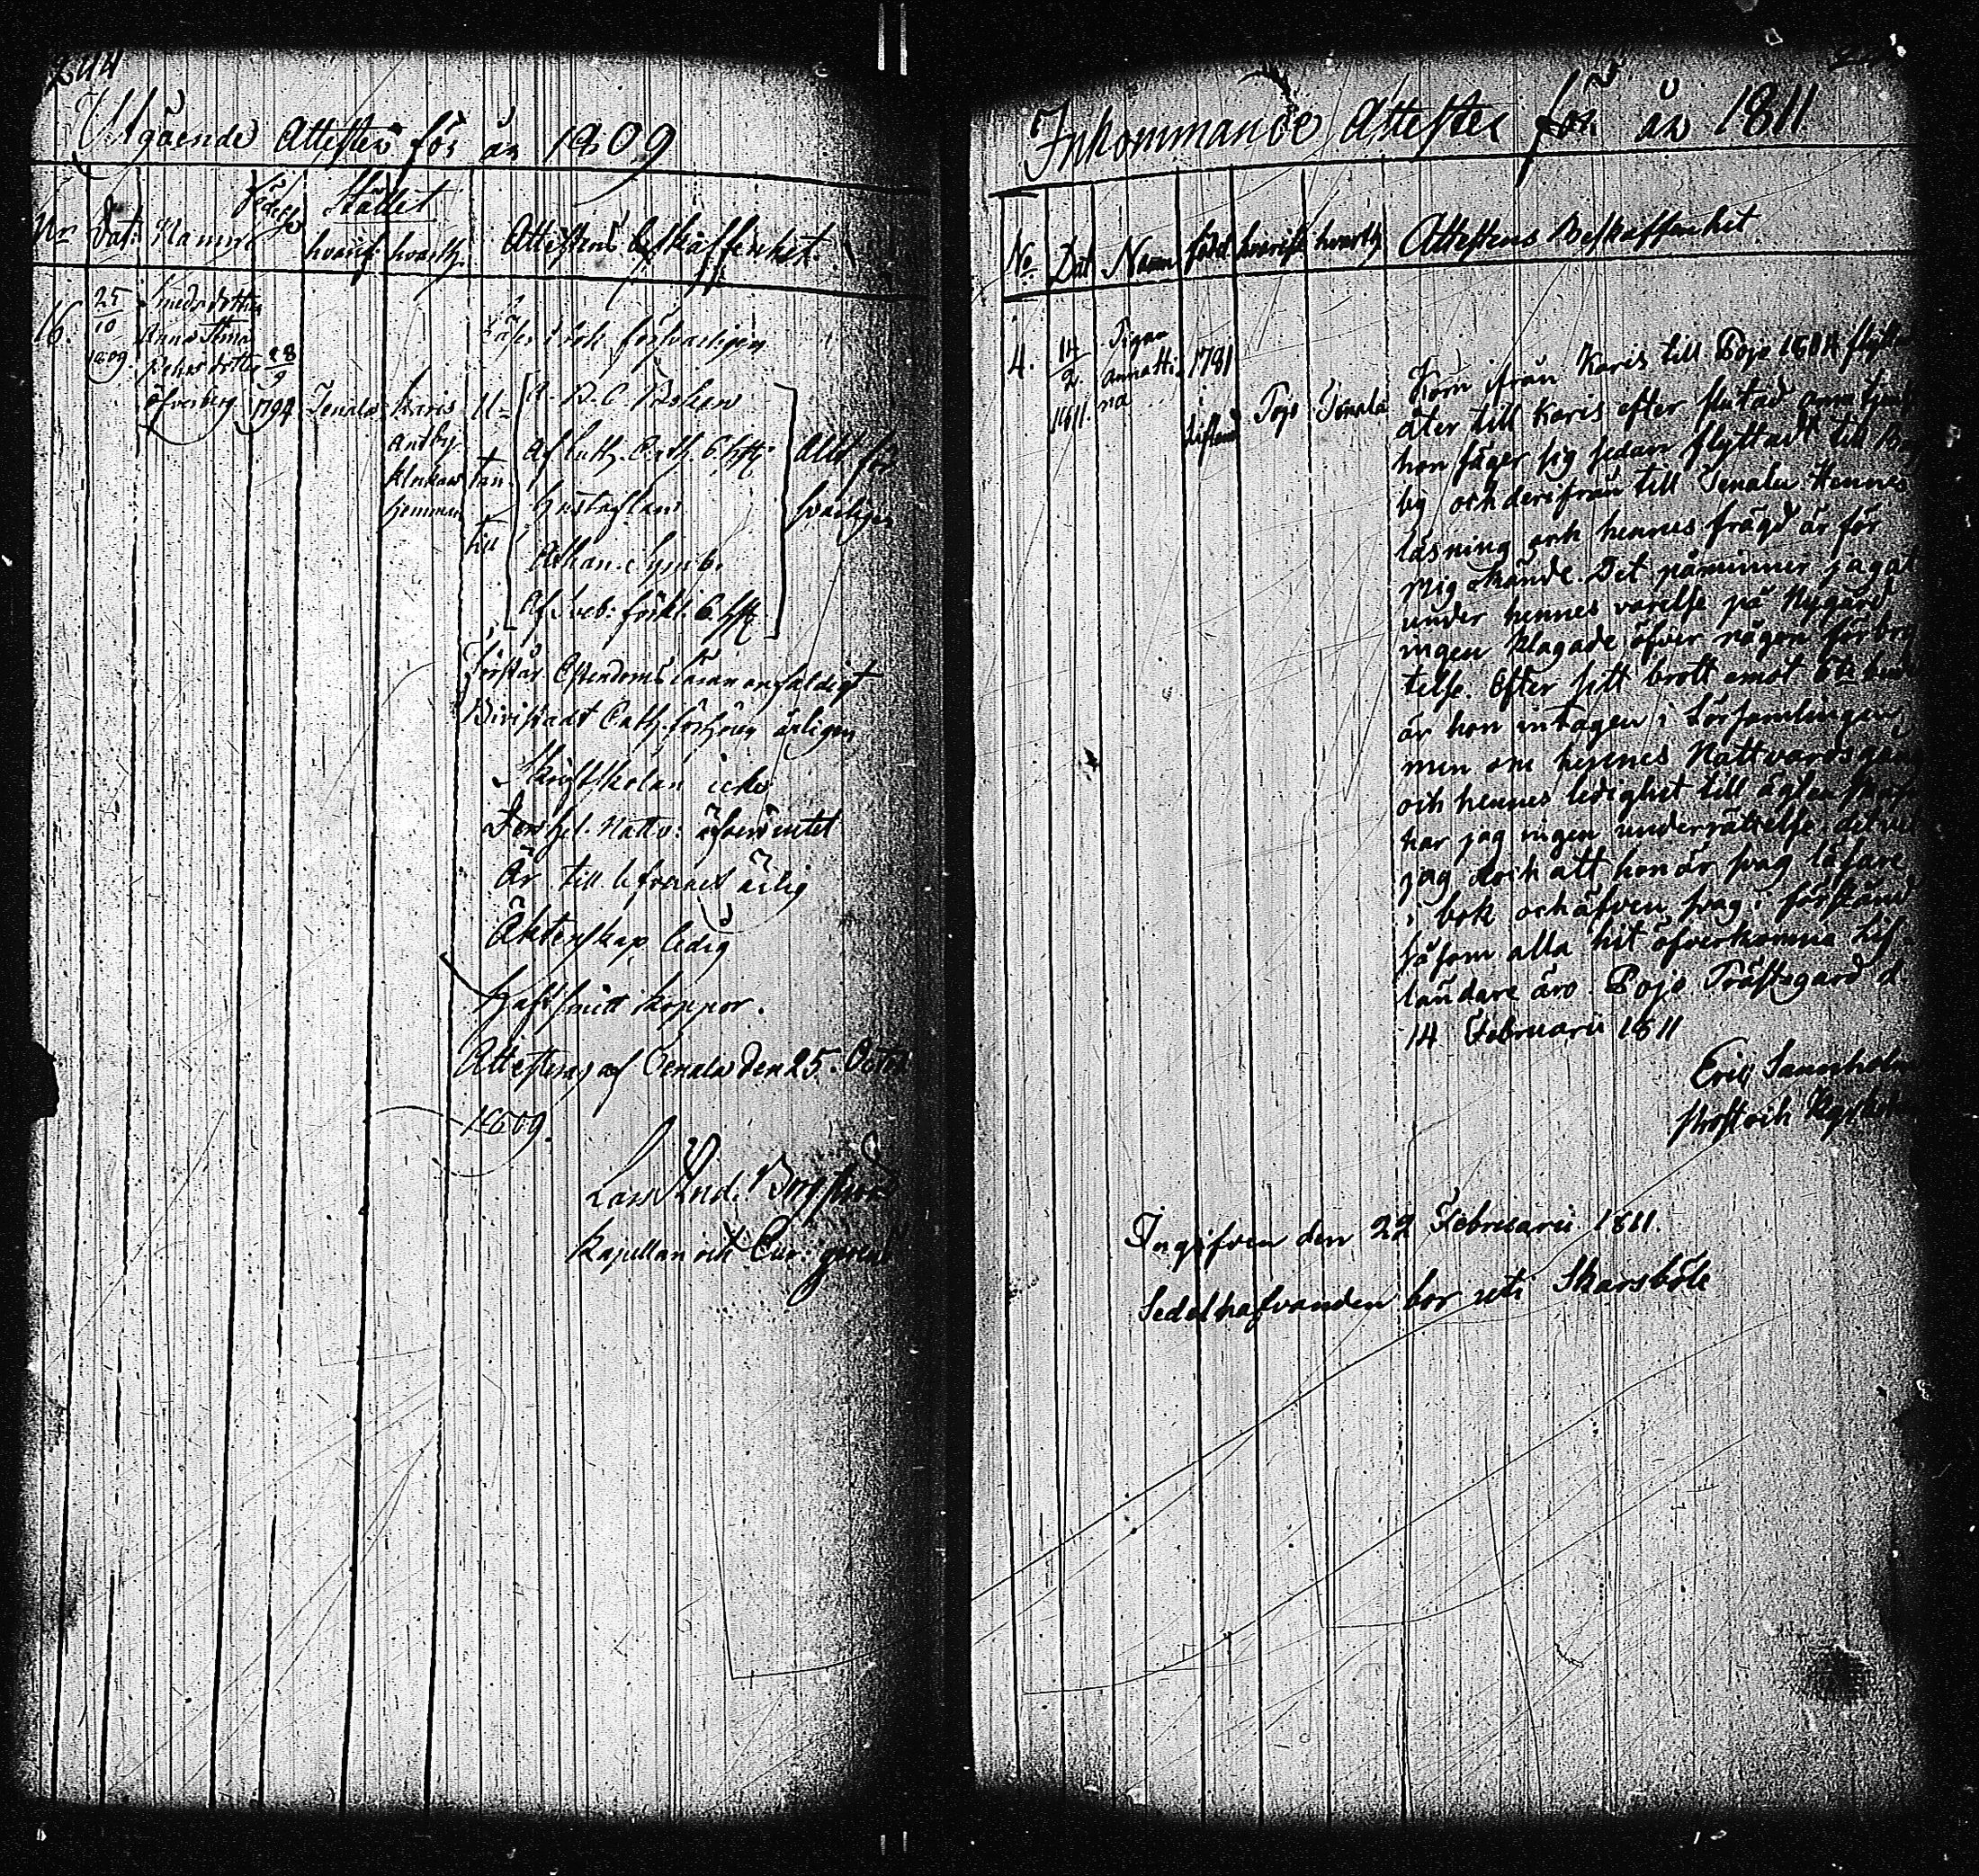 244
Utgående Attester för år 1809
Nr Dat: Namn Födelse Stället
hvarif. hvarth. Attestens Beskaffenhet.
16. 25/10 1809 Smedsdottren
Anna Stina
öfverberg 28/9 1794 Tenala Karis
Läser i bok försvarligen
U-
tan-
till
A. B. C Boken
Af Luth. Cath.
Hustaflan
Athan. Symb.
Af Sveb: förkl.
Allt för-
svarligen
Förstår Christendoms Läran enfaldigt
Bivistadt Cath. förhören årligen
Skriftskolan icke
Den hel. Nattv: äfven intet
Är till lefvernet ärlig
Äktenskap ledig
Haft smitt koppor.
Attesteras af Tenala den 25. Octob
1809.
Lars And.
Kapellan och
Inkommande Attester för år 1811
No Dat Namn född hvarifr hvarth Attestens Beskaffenhet
4. 14/2 1811. Pigan
Anna Sti-
na 1781 Pojo Tenala
Kom ifrån Karis till Pojo
åter till Karis efter slutad
hon säger sig sedan flyttadt till
by och derifrån till Tenala Hennes
läsning och hennes frägd är för
mig okände. Det påminner jag at
under hennes varelse på Nygård
ingen klagade öfver någon förbry
telse. Efter sitt brott emot 6te bud
är hon intagen i Församlingen
men om hennes Nattvardsgång
och hennes ledighet till ägtenskap
har jag ingen underrättelse det vet
jag doch att hon är svag läsare
i bok och äfven svag i förstånd
såsom alla hit öfverkomna Lif-
ländare äro. Pojo Prästegård d
14 Februarii 1811
Eric
Prost och Kyrkoh
Ingifven den 22 Februarii 1811.
Sedelhafvanden bor uti Skarsböle